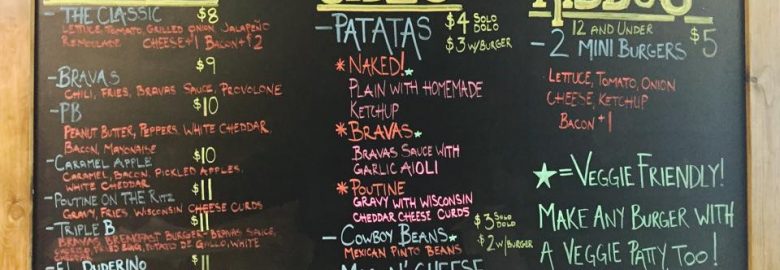 - The Classic $8
Lettuce, Tomato, Grilled Onion, Jalapeño
Remoulade Cheese+1 Bacon+$2
- Bravas $9
Chili, Fries, Bravas Sauce, Provolone
- PB $10
Peanut Butter, Peppers, White Cheddar,
Bacon, Mayonaise
- Caramel Apple $10
Caramel, Bacon, Pickled Apples,
White Cheddar
- Poutine on the Ritz $11
Gravy, Fries, Wisconsin Cheese Curds
- Triple B $11
Bravas, Breakfast Burger - Bravas Sauce,
Cheddar Fried Egg, Potato de Gallo, White
- El Duderino $11
- Patatas $4 Solo Dolo
$3 w/Burger
*Naked! ★
Plain with Homemade
Ketchup
*Bravas ★
Bravas Sauce with
Garlic Aioli
*Poutine
Gravy with Wisconsin
Cheddar Cheese Curds
- Cowboy Beans ★ $3 Solo Dolo
Mexican Pinto Beans $2 w/Burger
Cheese
12 and Under
- 2 Mini Burgers $5
Lettuce, Tomato, Onion
Cheese, Ketchup
Bacon+1
★ = Veggie Friendly!
Make Any Burger with
a Veggie Patty Too!